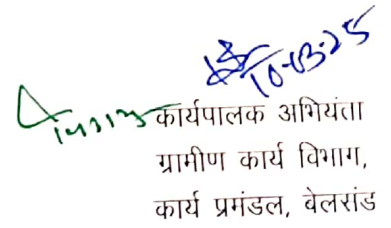 10-03-25
कार्यपालक अभियंता
ग्रामीण कार्य विभाग,
कार्य प्रमंडल, बेलसंड